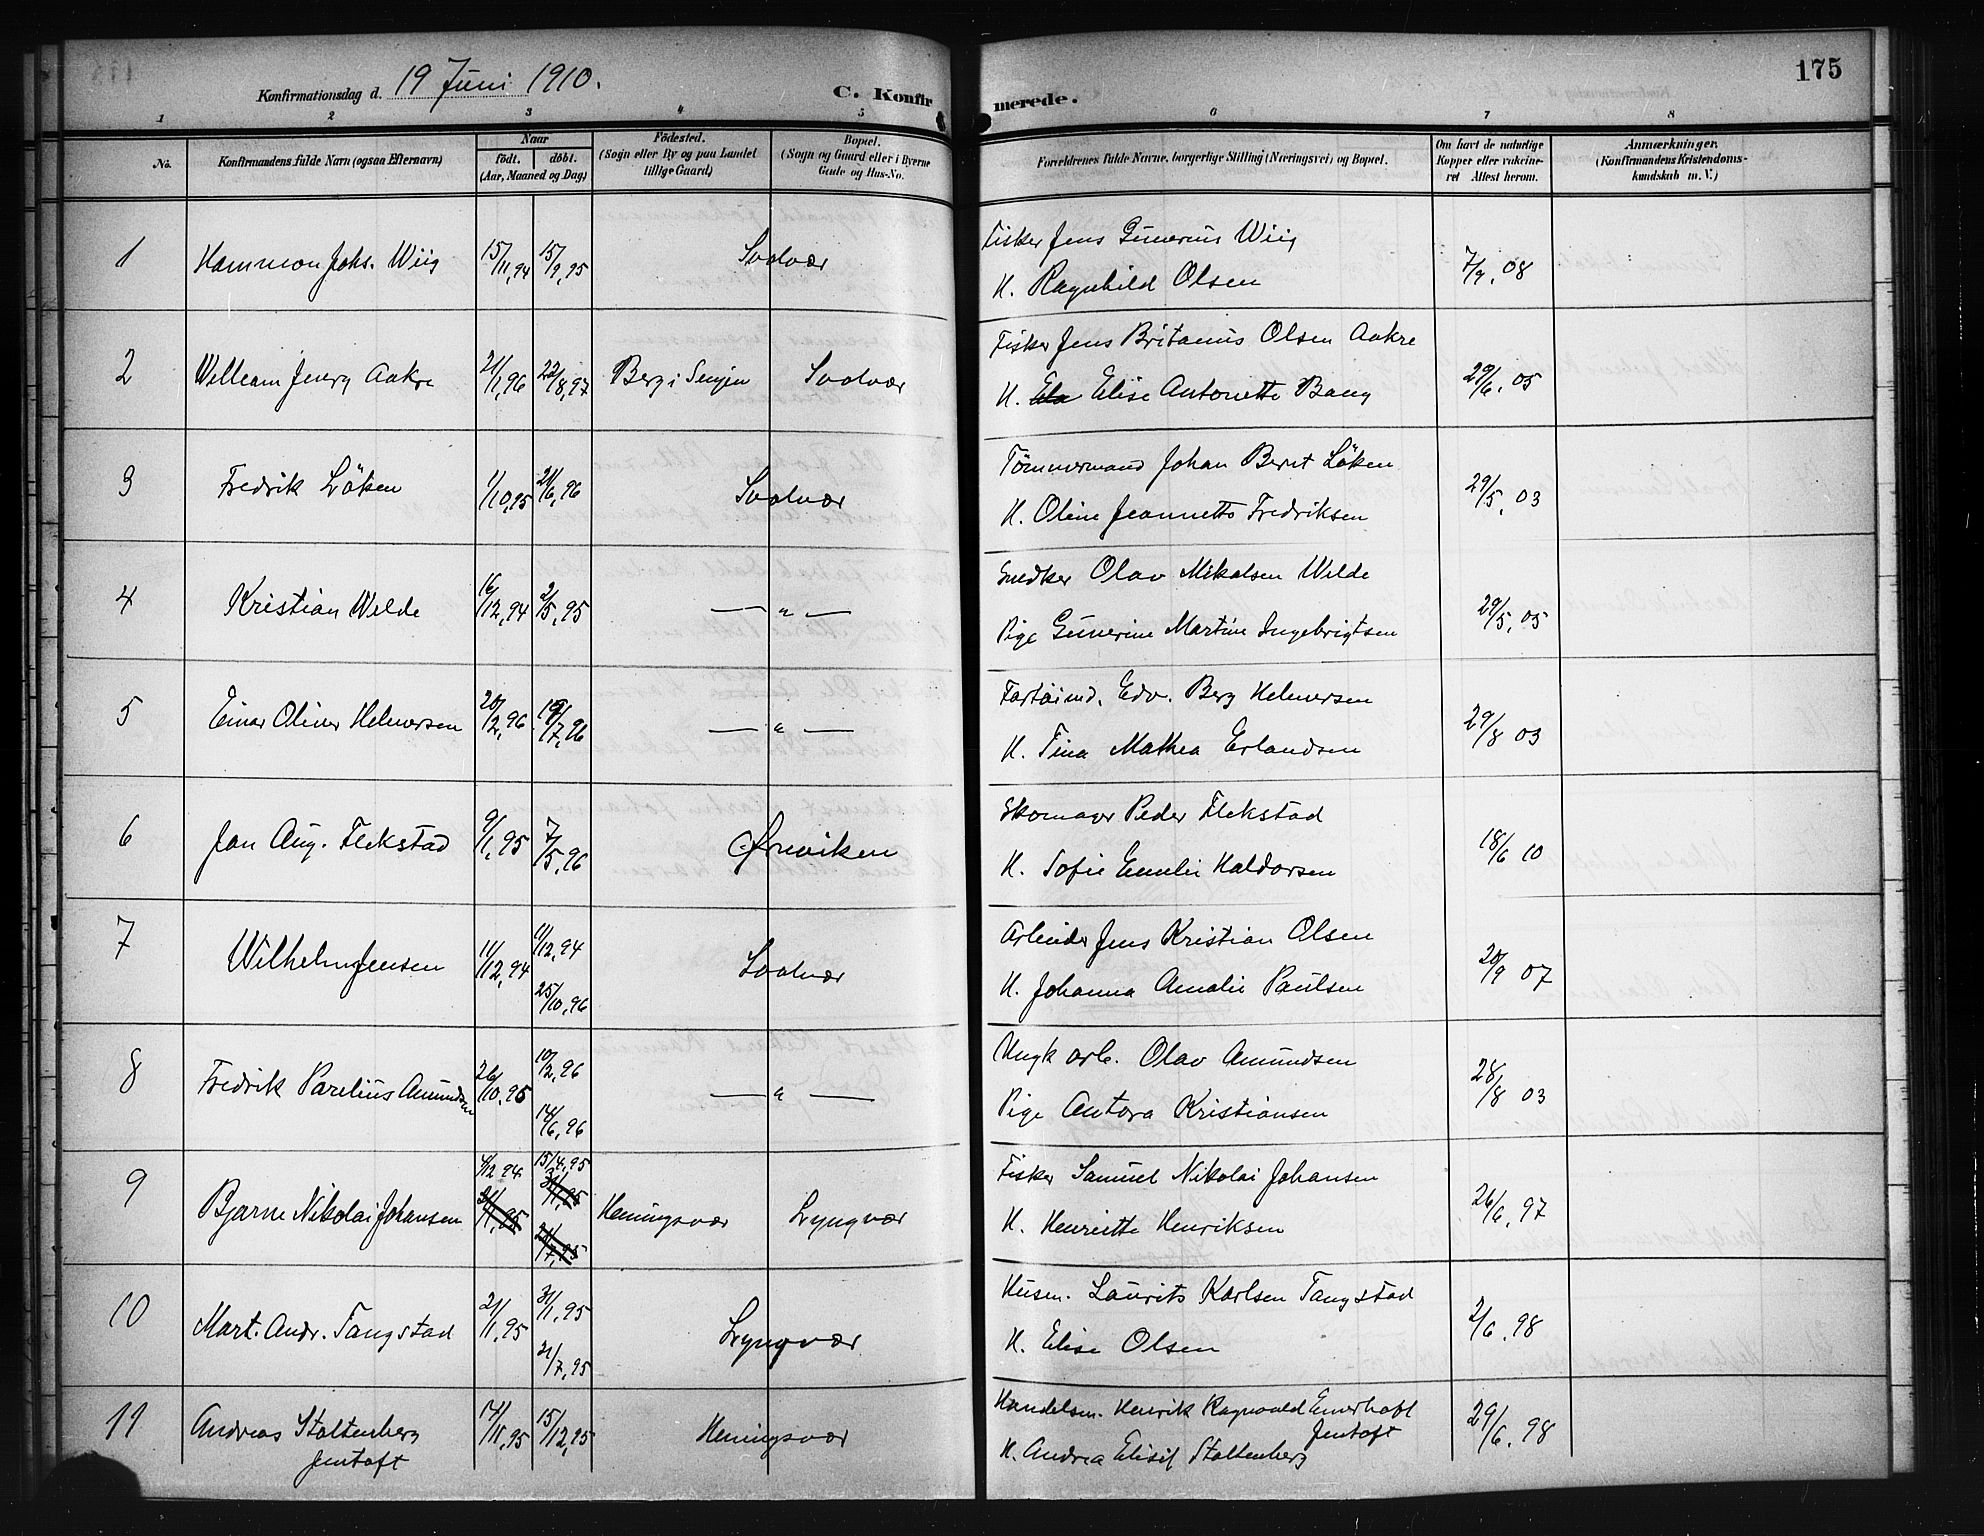 Konfirmationsdag d. 19 Juni 1910.
C. Konfirmerede.
175
1 2 3 4 5 6 7 8
No.
Konfirmandens fulde Navn (ogsaa Efternavn)
Naar
født. døbt.
(Aar, Maaned og Dag)
Fødested.
(Sogn eller By og paa Landet
tillige Gaard)
Bopæl.
(Sogn og Gaard eller i Byerne
Gade og Hus-No.
Forældrenes fulde Navne, borgerlige Stilling (Næringsvei) og Bopæl.
Om havt de naturlige
Kopper eller vakcine-
ret Attest herom.
Anmærkninger.
(Konfirmandens Kristendoms-
kundskab m. V.)
1 Hammon Johs. Wiig 15/11,94 15/9,95 Svolvær
Fisker Jens Gunerius Wiig
H. Ragnhild Olsen 7/9, 08
2 William Jenry Aakre 21/1,96 22/8,97 Berg i Senjen Svolvær
Fisker Jens Britanius Olsen Aakre
H. Ela Elise Antonette Bang 29/6, 05
3 Fredrik Løken 1/10,95 21/6,96 Svolvær
Tømmermand Johan Bernt Løken
H. Oline Jeannette Fredriksen 29/5, 03
4 Kristian Wilde 16/12,94 2/5,95 — " —
Snedker Olav Mikalsen Wilde
Pige Gunerine Martine Ingebrigtsen 29/5, 05
5 Einar Oliver Helmersen 20/2,96 19/7,96 — " —
Fartøimd. Edv. Berg Helmersen
H. Tina Mathea Erlandsen 29/8 03
6 Jan Aug. Flekstad 9/1,95 7/5,96 Ørneviken
Skomager Peder Flekstad
H. Sofie Emelie Haldorsen 18/6 10
7 Wilhelm Jensen 11/12,94 11/12,94
25/10,96 Svolvær
Arbeider Jens Kristian Olsen
H. Johanna Amalie Paulsen 20/9 07
8 Fredrik Parelius Amundsen 26/10,95 10/2,96
14/6,96 — " —
Ungk arb. Olav Amundsen
Pige Antora Kristiansen 28/8 03
9 Bjarne Nikolai Johansen 4/12 94 15/4,95
31/1,95 Henningsvær Lyngvær
21/7,95
Fisker Samuel Nikolai Johansen
H. Henriette Henriksen 26/6, 97
10 Mart. Andr. Tangstad 21/1,95 31/1,95
21/7,95 Lyngvær
Husm. Laurits Karlsen Tangstad
H. Elise Olsen 2/6, 98
11 Andreas Stoltenberg
Jentoft 17/11,95 15/12,95 Henningsvær
Handelsm. Henrik Ragnvald Einerhoft
Jentoft
H. Andrea Elisif Stoltenberg 29/6, 98